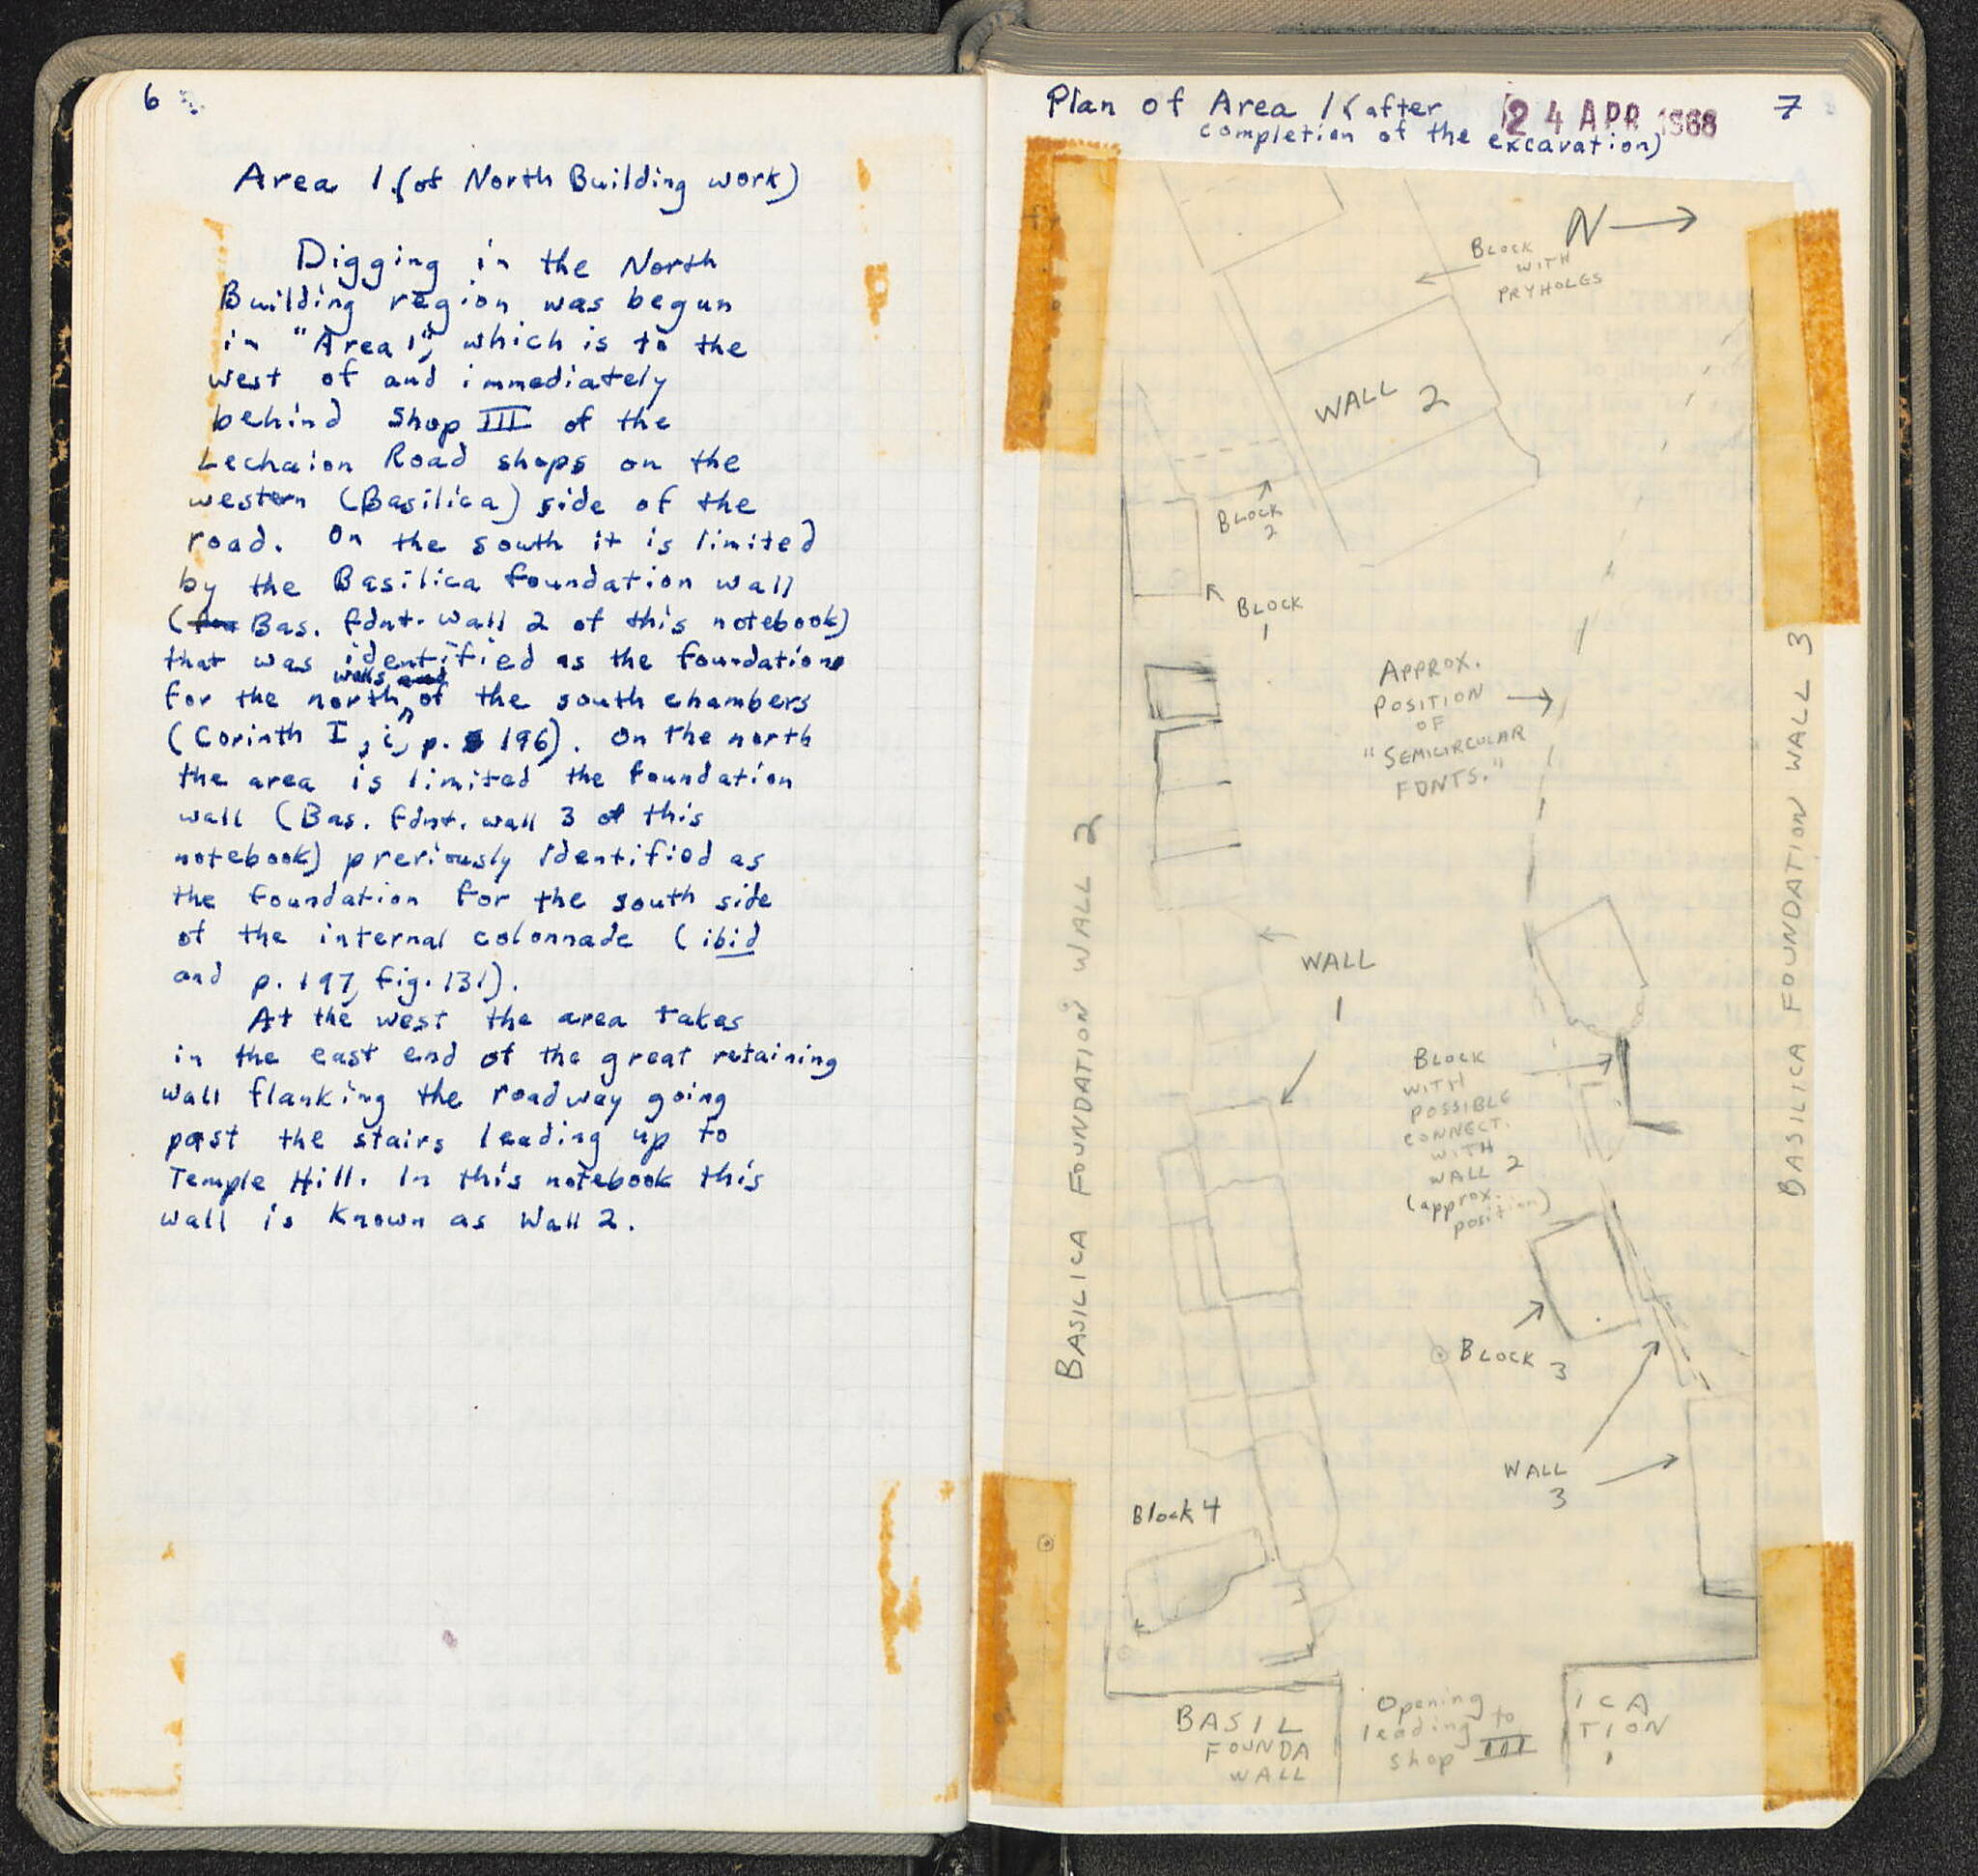 6
Area 1 (of North Building work)
Digging in the North
Building region was begun
in "Area 1", which is to the
west of and immediately
behind Shop III of the
Lechaion Road shops on the
western (Basilica) side of the
road. On the south it is limited
by the Basilica foundation wall
(Bas. fdnt. wall 2 of this notebook)
that was identified as the foundations
walls
for the north of the south chambers
(Corinth I, i, p. 196). On the north
the area is limited the foundation
wall (Bas. fdnt. wall 3 of this
notebook) previously identified as
the foundation for the south side
of the internal colonnade (ibid
and p. 197, fig. 131).
At the west the area takes
in the east end of the great retaining
wall flanking the roadway going
past the stairs leading up to
Temple Hill. In this notebook this
wall is known as Wall 2.
Plan of Area 1 (after
completion of the excavation)
24 APR 1968
7
N
BLOCK
WITH
PRYHOLES
WALL 2
BLOCK
2
BLOCK
1
APPROX.
POSITION
OF
"SEMICIRCULAR
FDNTS."
BASILICA FOUNDATION WALL 2
BASILICA FOUNDATION WALL 3
WALL
1
BLOCK
WITH
POSSIBLE
CONNECT.
WITH
WALL 2
(approx.
position)
BLOCK 3
WALL
3
Block 4
BASIL
FOUNDA
WALL
Opening
leading to
shop III
ICA
TION
1